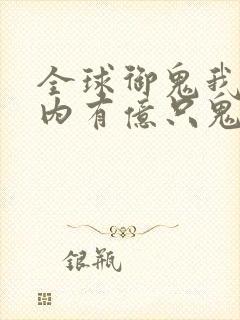 全球御鬼我
内有億只鬼
银瓶